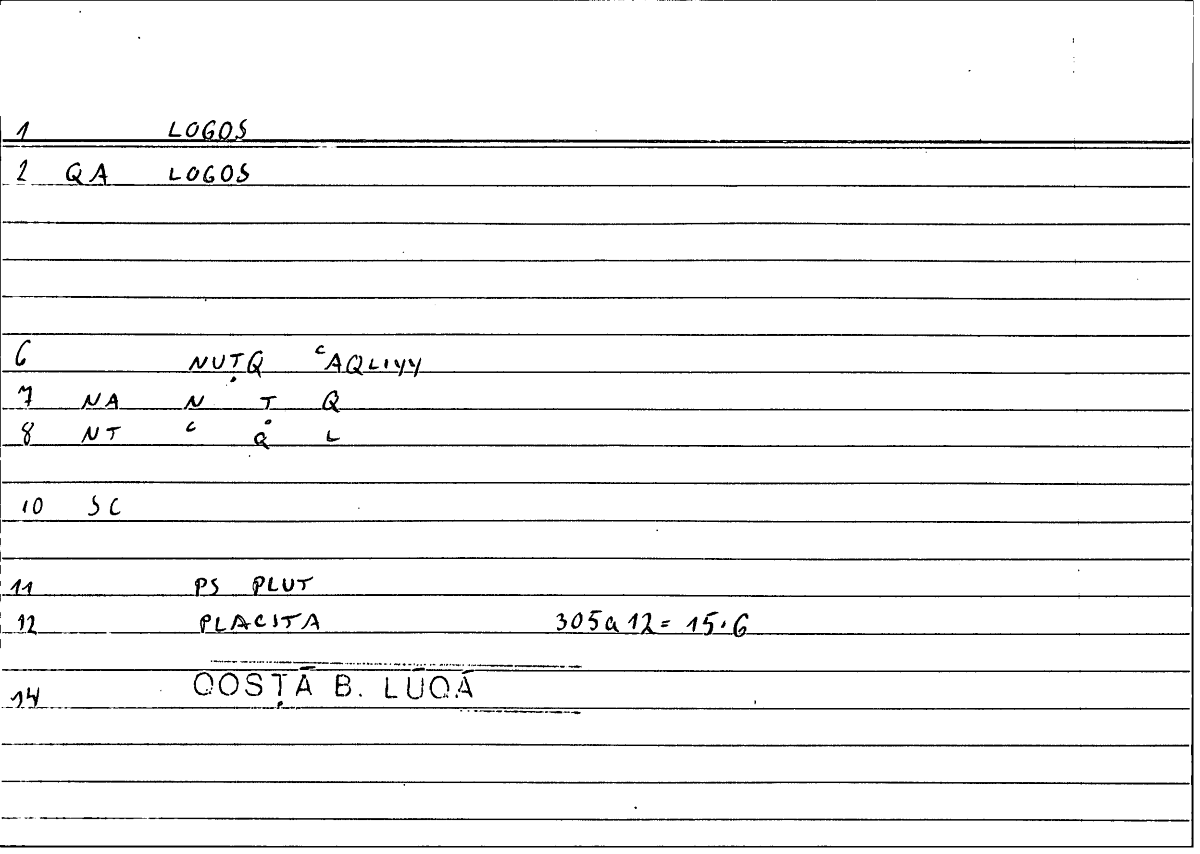 1 LOGOS
2 QA LOGOS
6 NUṬQ ᶜAQLIYY
7 NA N Ṭ Q
8 NT ᶜ Q L
10 SC
11 PS PLUT
12 PLACITA 305a12 = 15.6
14 QOSṬĀ B. LŪQĀ